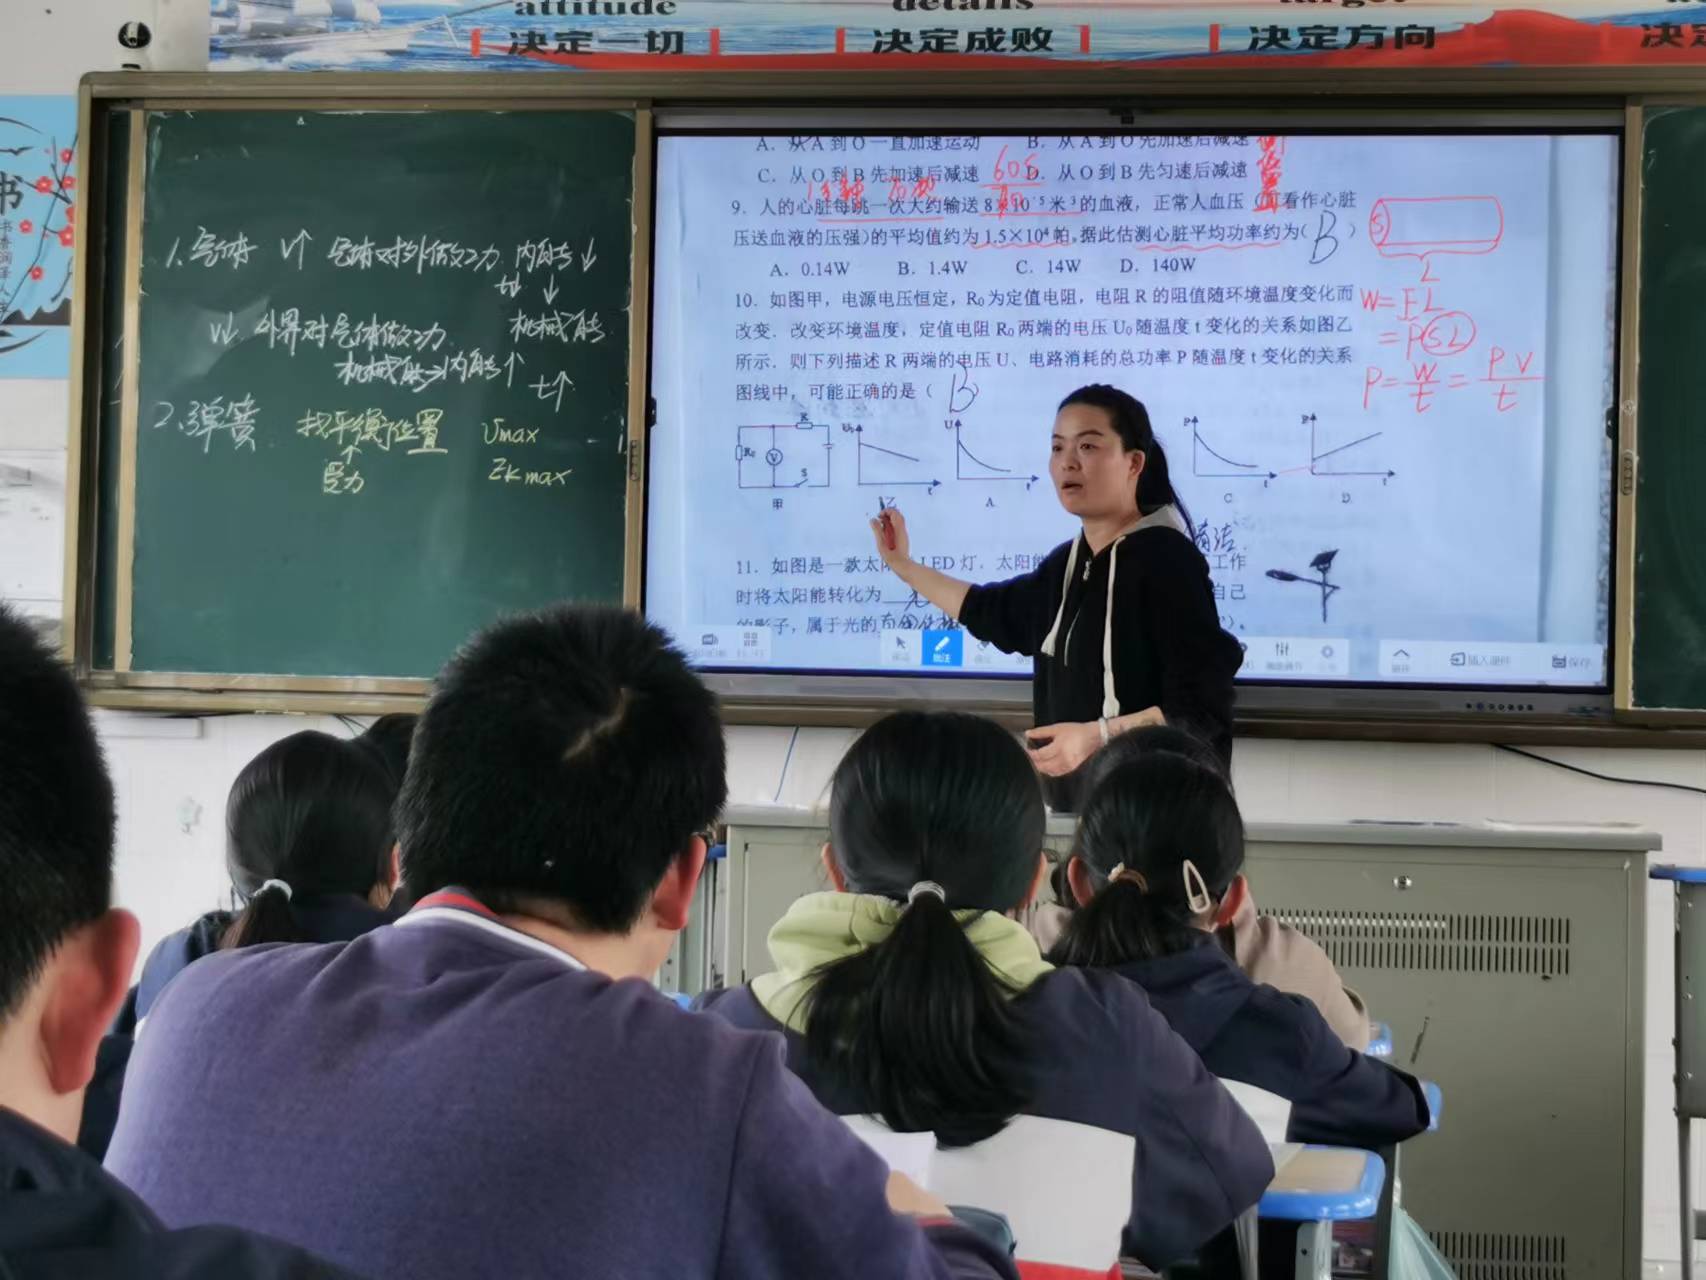 attitude
details
target
决定一切
决定成败
决定方向
决定
书
1.气体 V↑ 气体对外做功 内能↓
t↓ ↓
机械能
V↓ 外界对气体做功
机械能→内能↑
t↑
2.弹簧 找平衡位置 Vmax
↑
受力 Ekmax
A. 从A到O一直加速运动 B. 从A到O先加速后减速
C. 从O到B先加速后减速 D. 从O到B先匀速后减速
60s
9. 人的心脏每跳一次大约输送8×10⁻⁵米³的血液，正常人血压（可看作心脏
压送血液的压强)的平均值约为1.5×10⁴帕,据此估测心脏平均功率约为( B )
A. 0.14W B. 1.4W C. 14W D. 140W
S
L
W=FL
=PSL
P=W/t=PV/t
10. 如图甲，电源电压恒定，R₀为定值电阻，电阻R的阻值随环境温度变化而
改变. 改变环境温度，定值电阻R₀两端的电压U₀随温度t变化的关系如图乙
所示. 则下列描述R两端的电压U、电路消耗的总功率P随温度t变化的关系
图线中，可能正确的是（ B ）
R
R₀
V
S
甲
U₀
t
乙
U
t
A
P
t
C
P
t
D
11. 如图是一款太 LED灯. 太阳能 工作
时将太阳能转化为 自己
的影子，属于光的
插入课件
保存